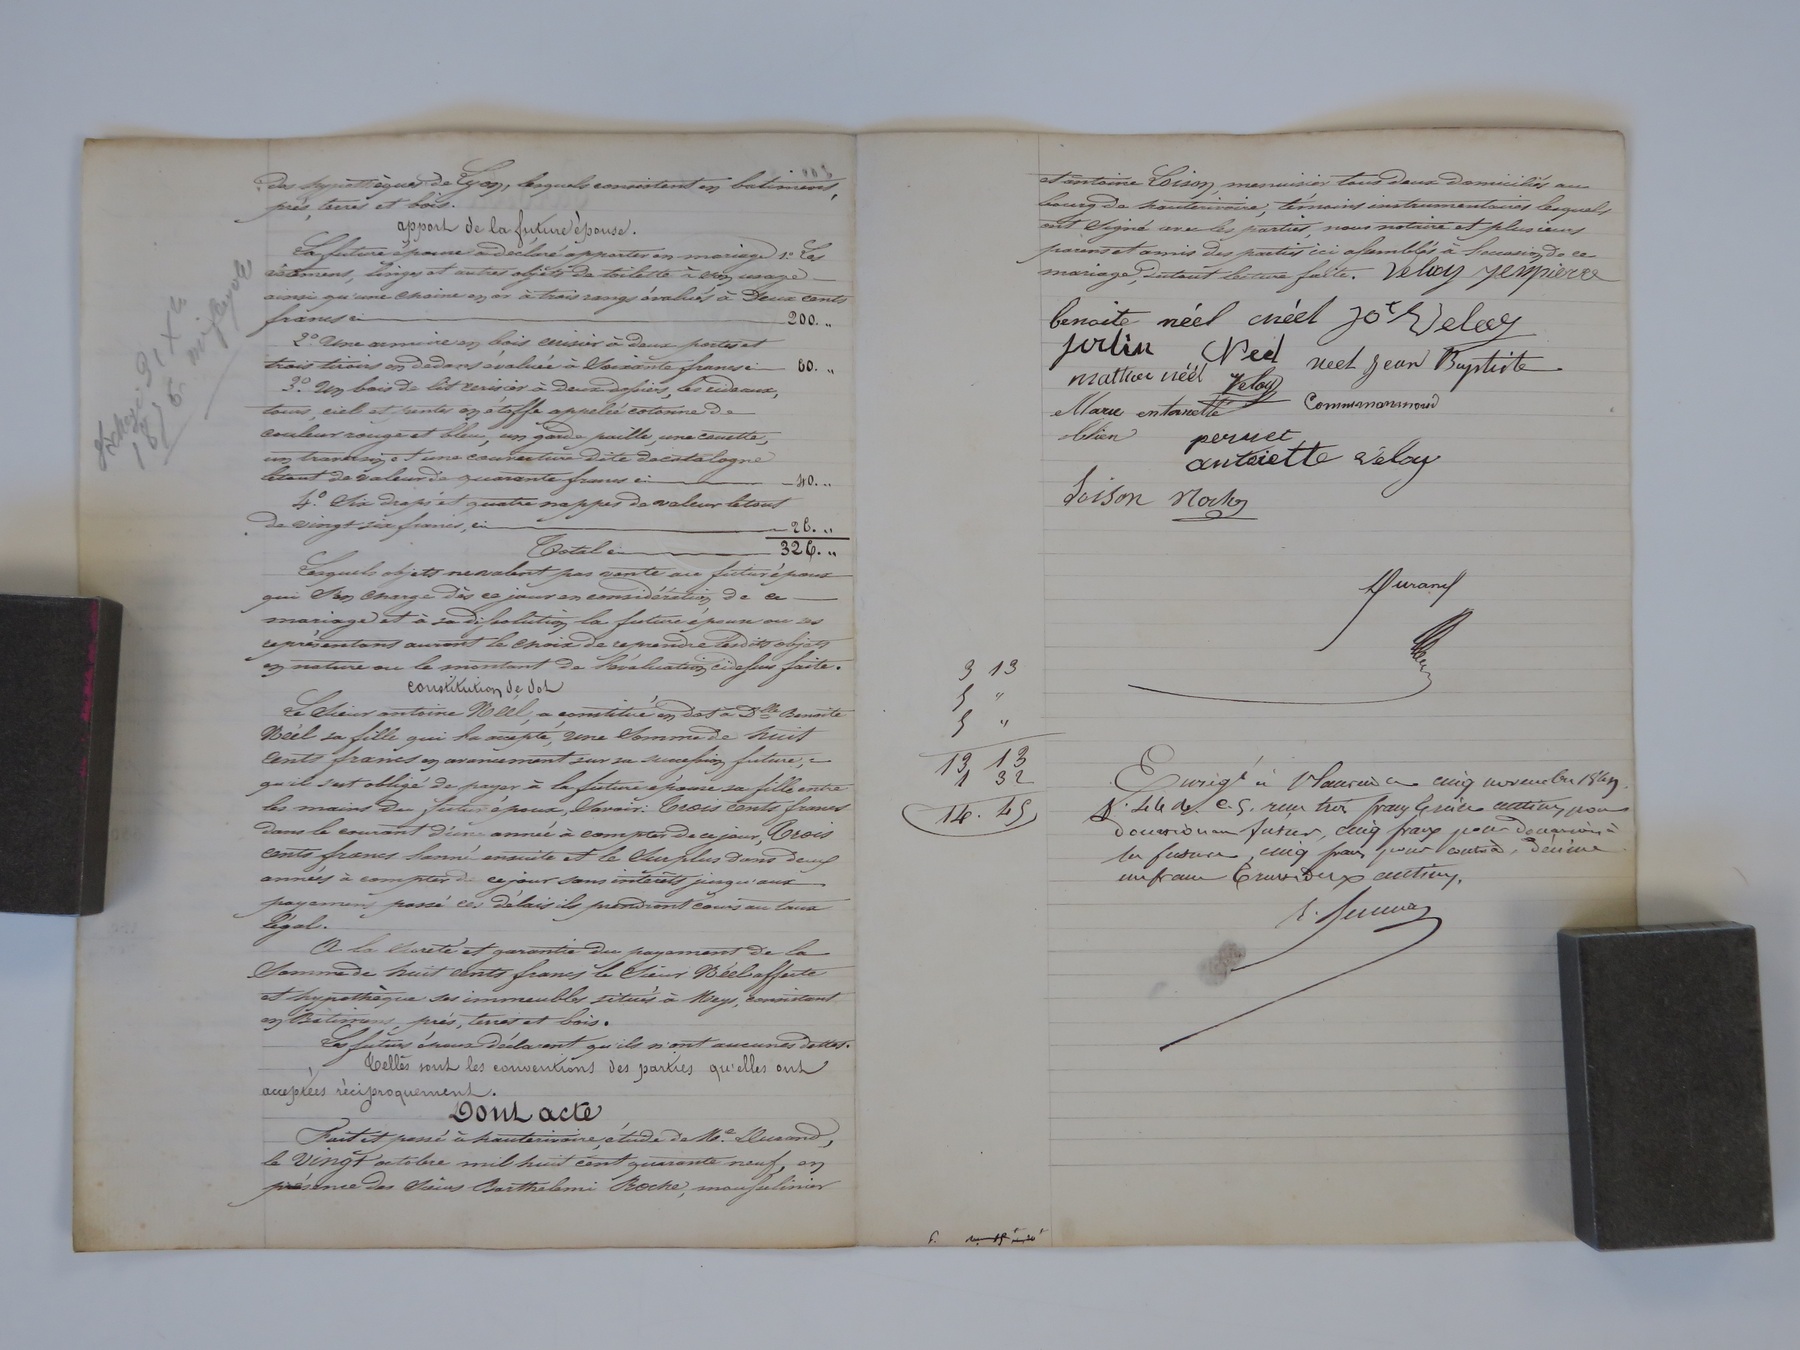 des hypothèques de Lyon, lesquels consistent en batimens,
prés, terres et bois.
apport de la future épouse.
La future épouse a déclaré apporter en mariage 1º Les
vêtemens, linges et autres objets de toilette à son usage
ainsi qu'une chaine en or à trois rangs évalués à Deux cents
francs ci 200. "
2º Une armoire en bois cerisier à deux portes et
trois tiroirs en dedans évaluée à Soixante francs ci 60. "
3º Un bois de lit cerisier à deux dossiers, les rideaux,
tours, ciel et pentes en étoffe appelée cotonne de
couleur rouge et bleu, un garde paille, une couette,
un traversin et une couverture dite de catalogne
le tout de valeur de quarante francs ci 40. "
4º Six draps et quatre nappes de valeur le tout
de vingt six francs, ci 26. "
Total ci 326. "
Lesquels objets ne valent pas vente au futur époux
qui s'en charge dès ce jour en considération de ce
mariage et à sa dissolution la future épouse ou ses
représentans auront le choix de reprendre lesdits objets
en nature ou le montant de l'évaluation ci dessus faite.
constitution de dot
Le Sieur antoine Néel, a constitué en dot à Dlle Benoite
Néel sa fille qui l'a accepté, une Somme de huit
cents francs en avancement sur sa succession future,
qu'il s'est obligé de payer à la future épouse sa fille entre
les mains du futur époux, Savoir: Trois cents francs
dans le courant d'une année à compter de ce jour, Trois
cents francs l'année ensuite et le Surplus dans deux
années à compter de ce jour sans intérêts jusqu'aux
payemens passé ces délais ils prendront cours au taux
légal.
A la Sureté et garantie du payement de la
Somme de huit cents francs le Sieur Néel affecte
et hypothèque ses immeubles situés à Meys, consistant
en Bâtimens, prés, terres et bois.
Les futurs époux déclarent qu'ils n'ont aucunes dettes.
Telles sont les conventions des parties qu'elles ont
acceptées réciproquement.
Dont acte
Fait et passé à hauterivoire, étude de Me Durand,
le Vingt octobre mil huit cent quarante neuf, en
présence des Sieurs Barthélemi Roche, mousselinier
et antoine Loison, menuisier tous deux domiciliés au
bourg de hauterivoire, témoins instrumentaires lesquels
ont Signé avec les parties, nous notaire et plusieurs
parens et amis des partis ici assemblés à l'occasion de ce
mariage, de tout lecture faite. Veloy jenpierre
benoite néel néel Jot Veloy
Néel neel Jean Baptiste
mattiee néel Veloy
Marie entoinette
pernet
antoiette véloy
Loison Roche
Durand
3 13
5 "
5 "
13 13
1 32
14. 45